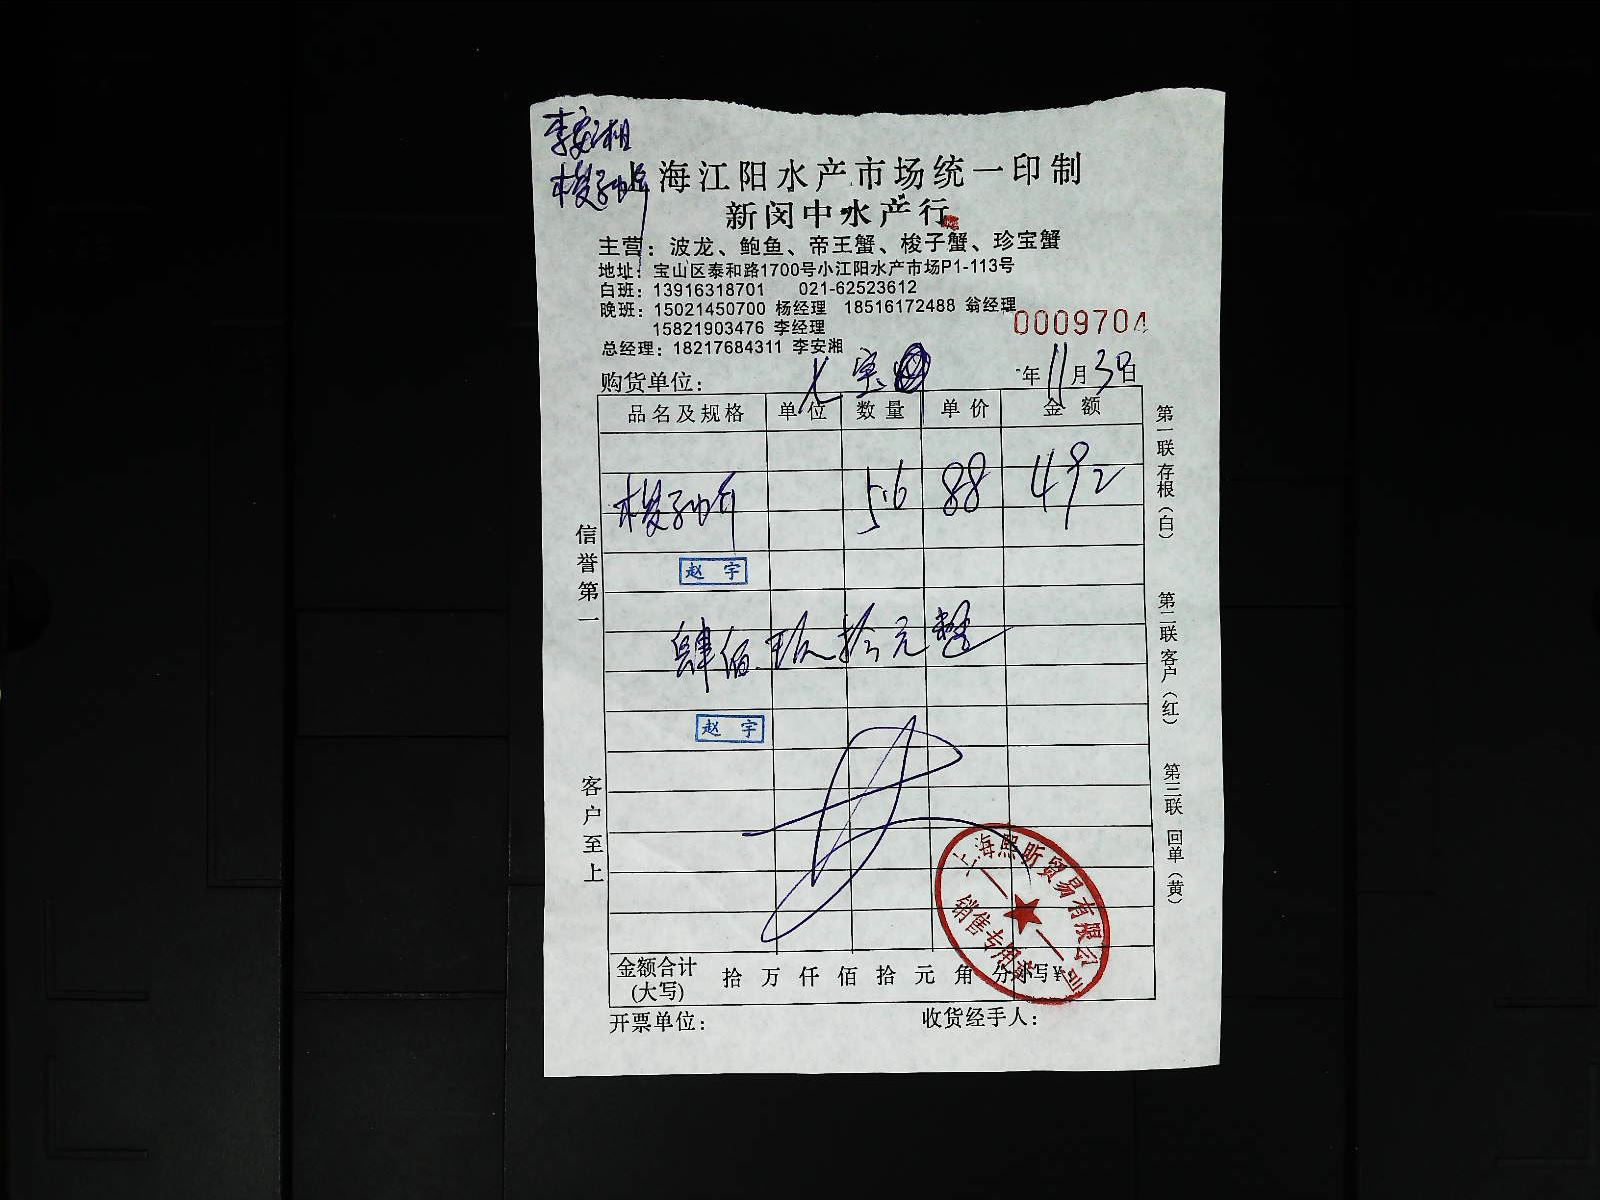 李安湘
梭子蟹
上海江阳水产市场统一印制
新闵中水产行
主营：波龙、鲍鱼、帝王蟹、梭子蟹、珍宝蟹
地址：宝山区泰和路1700号小江阳水产市场P1-113号
白班：13916318701 021-62523612
晚班：15021450700 杨经理 18516172488 翁经理
15821903476 李经理
0009704
总经理：18217684311 李安湘
购货单位： 七宝 年11月30日
品名及规格 单位 数量 单价 金额
梭子蟹 5.6 88 492
赵宇
肆佰玖拾元整
赵宇
上海熙昕贸易有限公司
销售专用章
金额合计
(大写)
拾万仟佰拾元角分 小写¥
开票单位： 收货经手人：
信誉第一
客户至上
第一联 存根（白）
第二联 客户（红）
第三联 回单（黄）